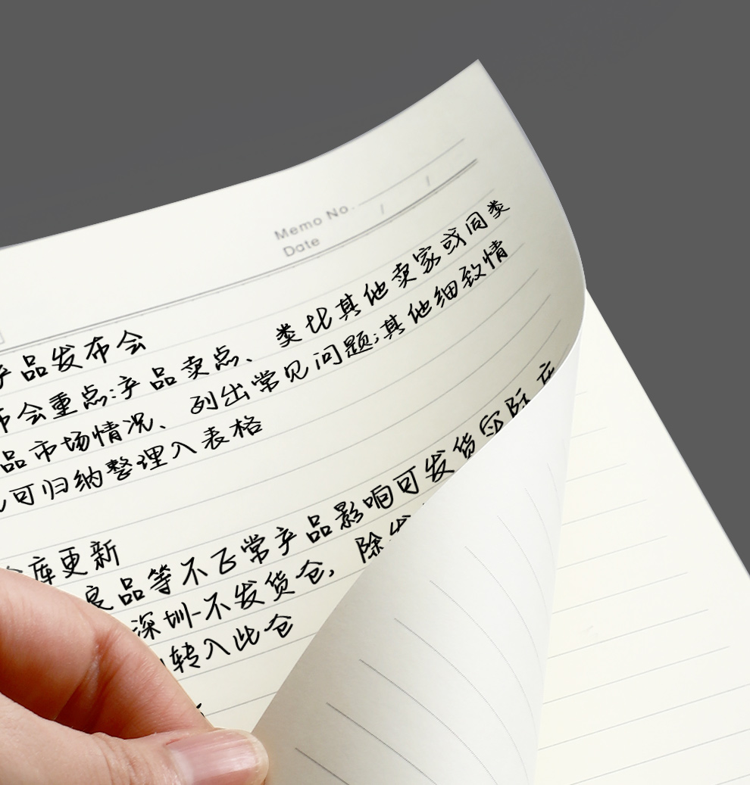 Memo No.
Date / /
产品发布会
布会重点:产品卖点、类比其他卖家或同类
品市场情况、列出常见问题;其他细致情
可归纳整理入表格
库更新
良品等不正常产品影响可发货实际库
深圳-不发货仓,除
转入此仓